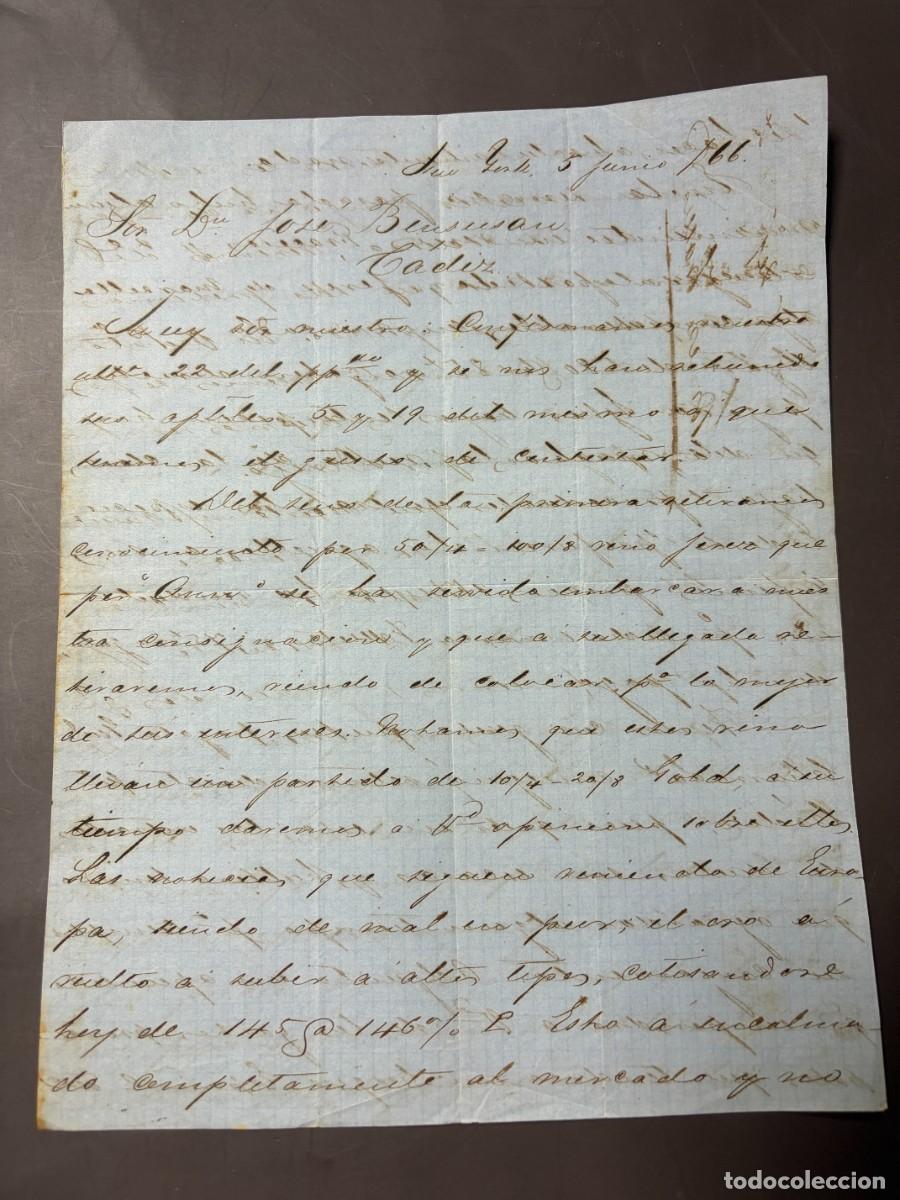 New York 5 Junio /66.
Sor Dn Jose Bensusan
Cadiz
Muy Sor nuestro: Confirmamos nuestra
ultª 22 del ppdo y se nos han reunido
sus aptbles 5 y 19 del mismo a que
tenemos el gusto de contestar
Del seno de la primera retiramos
conocimiento por 50/4 - 100/8 vino Jerez que
por se ha servido embarcar a nues
tra consignacion y que á su llegada re-
tiraremos, viendo de colocar pª lo mejor
de sus intereses. Notamos que estos vinos
llevan un partido de 10/4 - 20/8 Gold, a su
tiempo daremos a Vd opinion sobre ellos
Las noticias que siguen viniendo de Euro-
pa, siendo de mal en peor, el oro á
vuelto a subir a altos tipos, cotisandose
hoy de 145 @ 146 o/o P. Esto á encalma-
do completamente al mercado y no
todocoleccion